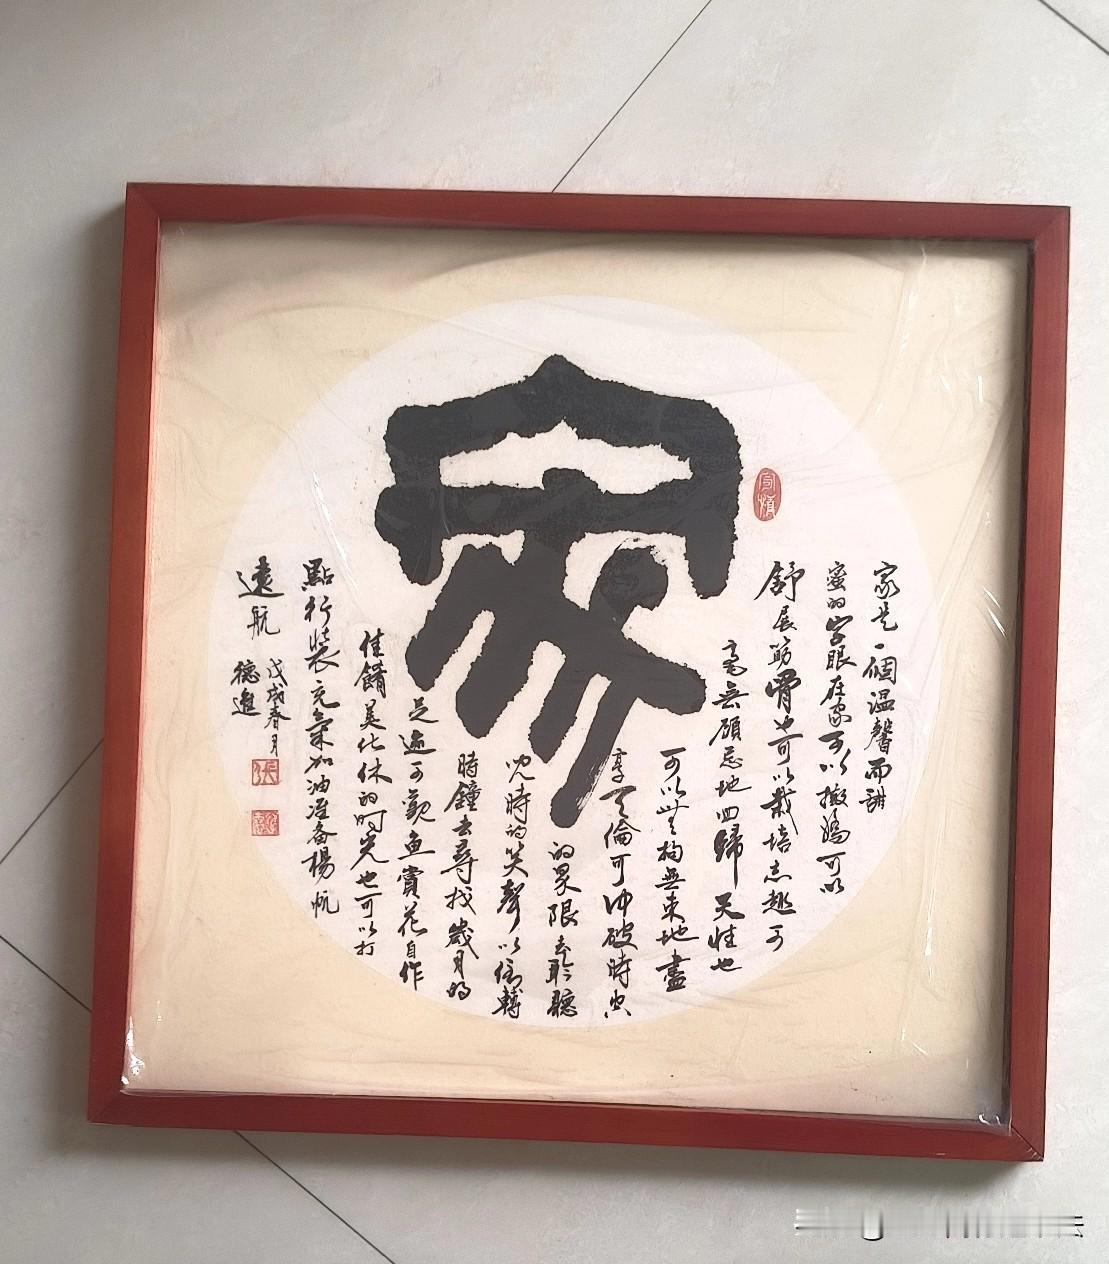 家
家是一個温馨而甜
蜜的字眼在家可以撒嬌可以
舒展筋骨也可以栽培志趣可
毫無顧忌地回歸天性也
可以無拘無束地盡
享天倫可冲破時空
的界限去聆聽
兒時的笑聲以倒轉
時鐘去尋找歲月的
足迹可觀魚賞花自作
佳餚美化休的时光也可以打
點行裝充氣加油准备楊帆
遠航
戊戌春月
德進